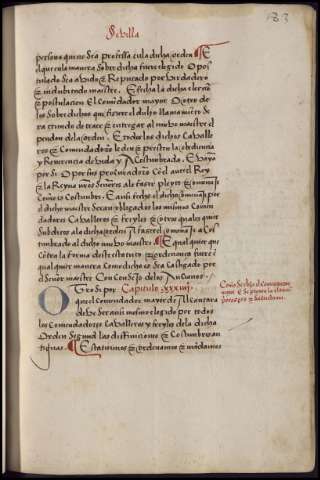 183
Sevilla
persona que no sea professa en la dicha orden E
el que en la manera sobre dicha fuere elegido o pos
tulado sea avido e Reputado por verdadero
e indubitado maestre. E fecha la dicha election
e postulacion El Comendador mayor o otro de
los sobre dichos que fiziere el dicho llamamiento se
ra tenudo de traer e entregar al nuevo maestre el
pendon de la orden. E todos los dichos cavalle
ros e comendadores le den e presten la obediencia
y Reverencia devida y acostumbrada. E vaya
por si o por sus procuradores ante el Rey
e la Reyna nros señores a les fazer pleyto e omenaje
como es costumbre. E aun fecho el dicho omenaje por
el dicho maestre sean obligados los mismos comen
dadores cavalleros e freyles e otros quales quier
subditos a la dicha orden a fazer el omenaje a cos
tumbrado al dicho nuevo maestre E qual quier que
contra la forma deste estatuto e ordenança fuere en
qual quier manera como dicho es sea castigado por
el señor maestre con consejo de los ancianos.
Capitulo xxxiiij.
Otrosi por
que el comendador mayor de Alcantara
deve ser assi mesmo elegido por todos
los comendadores cavalleros e freyles de la dicha
orden segund las difiniciones e costumbres an
tiguas. Estatuimos e ordenamos e mandamos